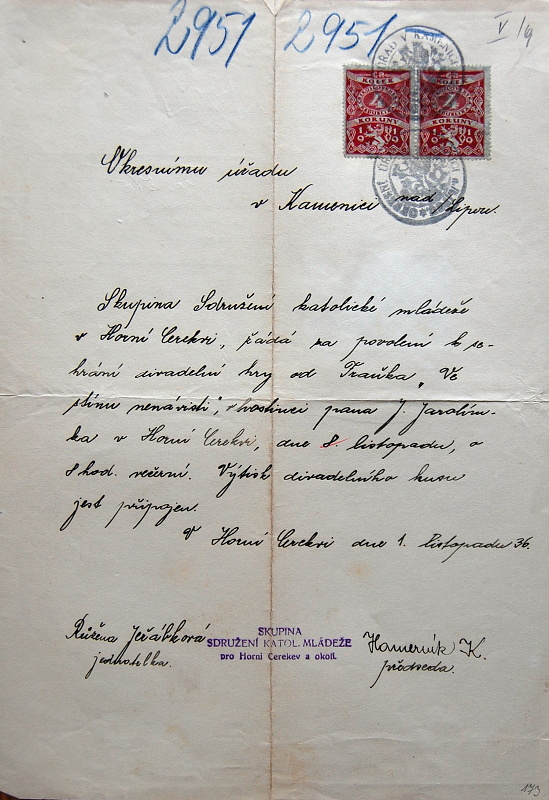 2951 2951
V/9
KOLEK KOLEK
4 4
KORUNY KORUNY
1919 1919
Okresnímu úřadu
v Kamenici nad Lipou.
Skupina Sdružení katolické mládeže
v Horní Cerekvi, žádá za povolení k se-
hrání divadelní hry od Traňka „Ve
stínu nenávisti", v hostinci pana J. Jarolím-
ka v Horní Cerekvi, dne 8. listopadu, o
8 hod. večerní. Výtisk divadelního kusu
jest připojen.
V Horní Cerekvi dne 1. listopadu 36.
Růžena Jeřábková
jednatelka.
SKUPINA
SDRUŽENÍ KATOL. MLÁDEŽE
pro Horní Cerekev a okolí.
Hamerník K.
předseda.